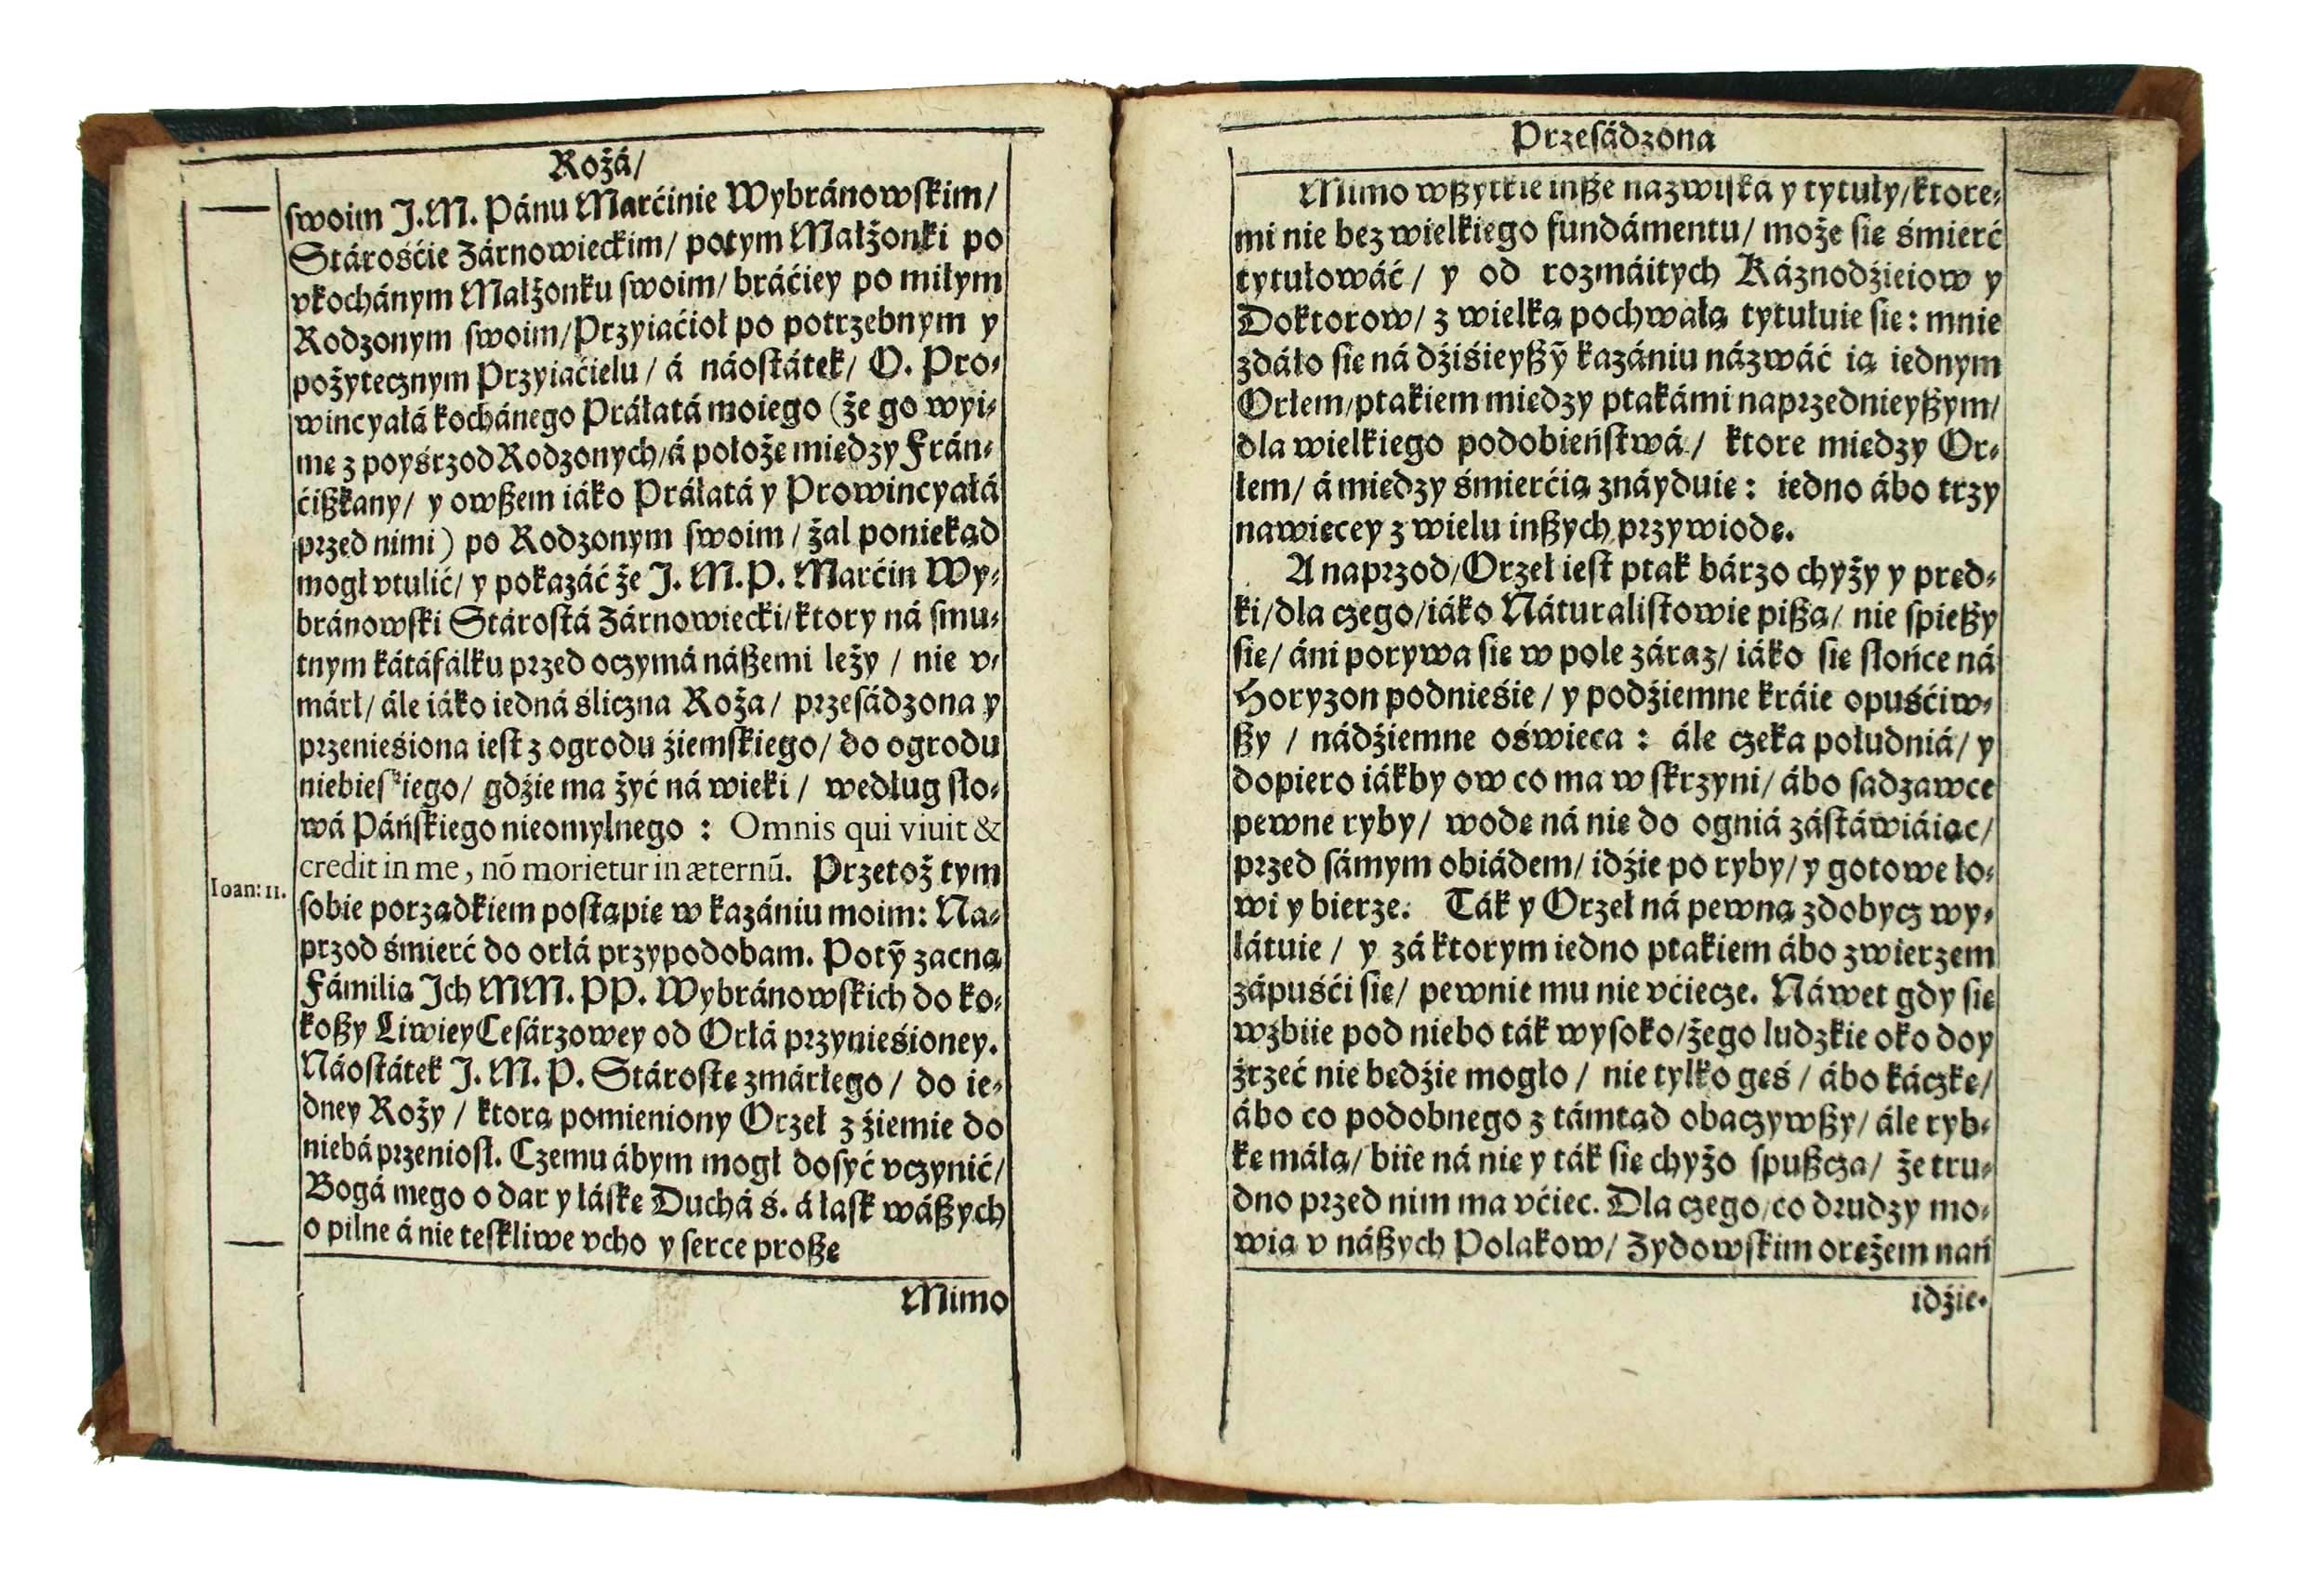 Rożá/
swoim J.M. Pánu Marćinie Wybránowskim/
Stárośćie Zárnowieckim/ potym Małżonki po
vkochánym Małżonku swoim/ bráćiey po miłym
Rodzonym swoim/ Przyiaćioł po potrzebnym y
pożytecznym Przyiaćielu / á náostátek/ O. Pro-
wincyałá kochánego Práłatá moiego (że go wyi-
mę z pośrzod Rodzonych/ á położę między Frán-
ćißkany/ y owßem iáko Práłatá y Prowincyałá
przed nimi) po Rodzonym swoim / żal poniekąd
mogł vtulić/ y pokazáć że J. M. P. Marćin Wy-
bránowski Stárostá Zárnowiecki/ ktory ná smu-
tnym kátáfálku przed oczymá náßemi leży / nie v-
márł/ ále iáko iedná śliczna Roża/ przesádzona y
przenieśiona iest z ogrodu źiemskiego/ do ogrodu
niebieskiego/ gdźie ma żyć ná wieki / według sło-
wá Páńskiego nieomylnego : Omnis qui viuit &
credit in me, nō morietur in æternū. Przetoż tym
Ioan: 11.
sobie porządkiem postąpię w kazániu moim: Na-
przod śmierć do orłá przypodobam. Potỹ zacną
Fámilią Ich MM. PP. Wybránowskich do ko-
koßy Liwiey Cesárzowey od Orłá przynieśioney.
Náostátek J. M. P. Stárostę zmárłego / do ie-
dney Roży / ktorą pomieniony Orzeł z źiemie do
niebá przeniosł. Czemu ábym mogł dosyć vczynić/
Bogá mego o dar y łáskę Duchá ś. á łask wáßych
o pilne á nie teskliwe vcho y serce proßę
Mimo
Przesádzona
Mimo wßytkie inße nazwiska y tytuły/ ktore-
mi nie bez wielkiego fundámentu/ może się śmierć
tytułowáć / y od rozmáitych Káznodźieiow y
Doktorow/ z wielką pochwałą tytułuie się: mnie
zdáło się ná dźiśieyßỹ kazániu názwáć ią iednym
Orłem/ ptakiem miedzy ptakámi naprzednieyßym/
dla wielkiego podobieństwá / ktore miedzy Or-
łem/ á miedzy śmierćią znáyduię: iedno ábo trzy
nawięcey z wielu inßych przywiodę.
A naprzod/ Orzeł iest ptak bárzo chyży y pręd-
ki/ dla czego/ iáko Náturalistowie pißą/ nie spießy
się/ áni porywa się w pole záraz/ iáko się słońce ná
Horyzon podnieśie / y podźiemne kráie opuśćiw-
ßy / nádźiemne oświeca : ále czeka południá/ y
dopiero iákby ow co ma w skrzyni/ ábo sadzawce
pewne ryby/ wodę ná nie do ogniá zástáwiáiąc/
przed sámym obiádem/ idźie po ryby/ y gotowe ło-
wi y bierze. Ták y Orzeł ná pewną zdobycz wy-
látuie / y zá ktorym iedno ptakiem ábo zwierzem
zápuśći się/ pewnie mu nie vćiecze. Náwet gdy się
wzbiie pod niebo ták wysoko/ żego ludzkie oko doy
źrzeć nie będźie mogło / nie tylko gęś / ábo káczkę/
ábo co podobnego z támtąd obaczywßy/ ále ryb-
kę máłą/ biie ná nię y ták się chyżo spußcza/ że tru-
dno przed nim ma vćiec. Dla czego/ co drudzy mo-
wią v náßych Polakow/ Zydowskim orężem nań
idźie.